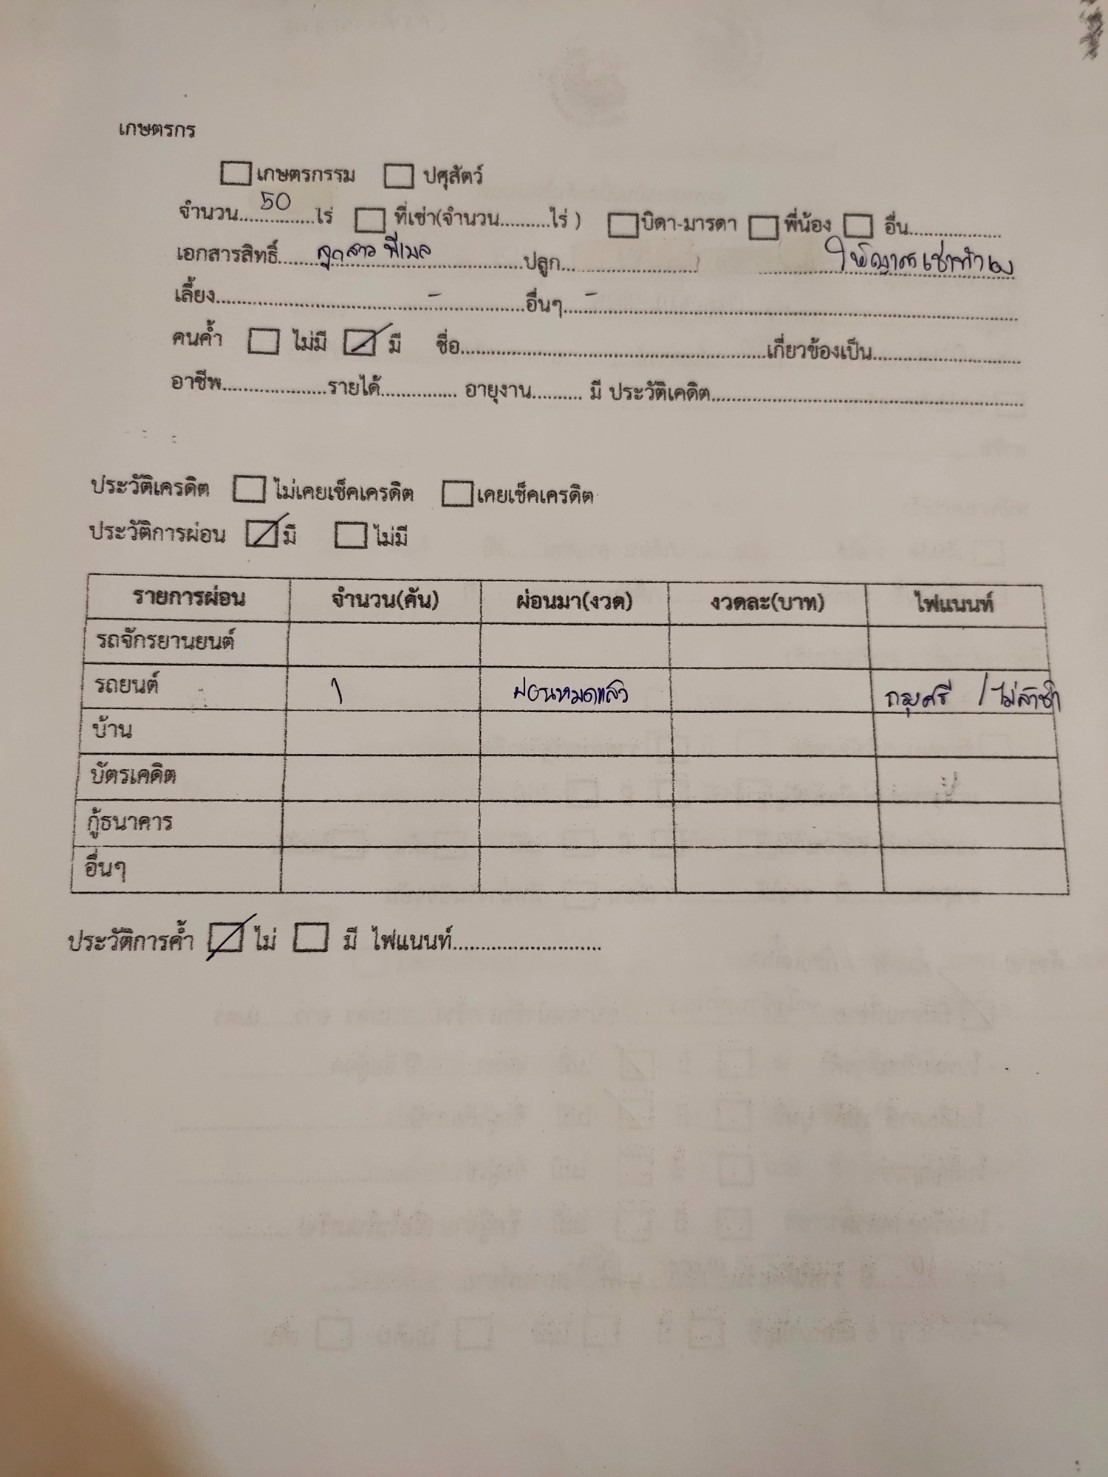 เกษตรกร
☐ เกษตรกรรม ☐ ปศุสัตว์
จำนวน....50....ไร่ ☐ ที่เช่า(จำนวน.........ไร่ ) ☐ บิดา-มารดา ☐ พี่น้อง ☐ อื่น..................
เอกสารสิทธิ์......ลูกสาว พี่เมล..............ปลูก...................... ให้ญาติเช่าทำเอง
เลี้ยง..................-..............อื่นๆ....-..........................................
คนค้ำ ☐ ไม่มี ☑ มี ชื่อ......................................................เกี่ยวข้องเป็น...........................
อาชีพ...................รายได้.............. อายุงาน......... มี ประวัติเคดิต.......................................................
ประวัติเครดิต ☐ ไม่เคยเช็คเครดิต ☐ เคยเช็คเครดิต
ประวัติการผ่อน ☑ มี ☐ ไม่มี
รายการผ่อน จำนวน(คัน) ผ่อนมา(งวด) งวดละ(บาท) ไฟแนนท์
รถจักรยานยนต์
รถยนต์ 1 ผ่อนหมดแล้ว กรุงศรี / ไม่ล่าช้า
บ้าน
บัตรเคดิต
กู้ธนาคาร
อื่นๆ
ประวัติการค้ำ ☑ ไม่ ☐ มี ไฟแนนท์..........................